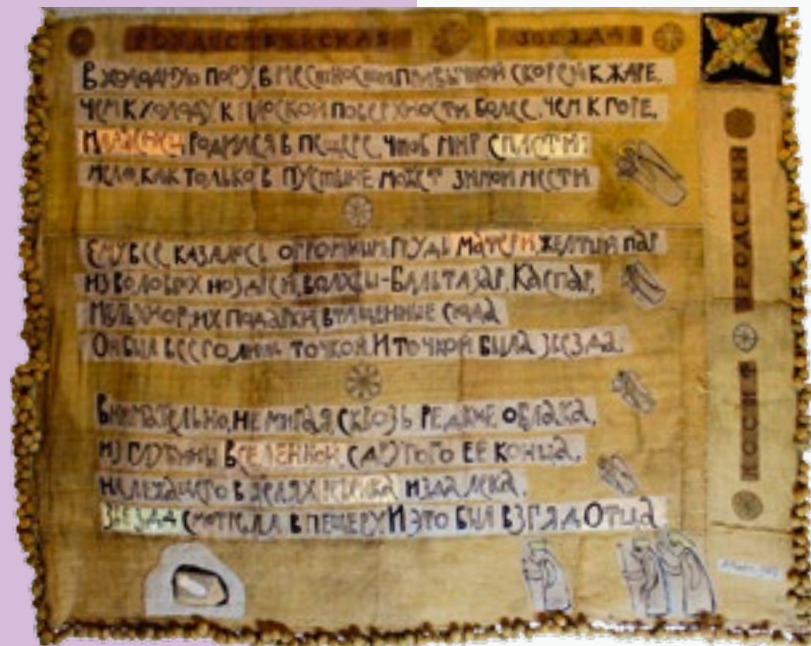 РОЖДЕСТВЕНСКАЯ ЗВЕЗДА
В ХОЛОДНУЮ ПОРУ, В МЕСТНОСТИ ПРИВЫЧНОЙ СКОРЕЙ К ЖАРЕ,
ЧЕМ К ХОЛОДУ, К ПЛОСКОЙ ПОВЕРХНОСТИ БОЛЕЕ, ЧЕМ К ГОРЕ,
МЛАДЕНЕЦ РОДИЛСЯ В ПЕЩЕРЕ, ЧТОБ МИР СПАСТИ:
МЕЛО, КАК ТОЛЬКО В ПУСТЫНЕ МОЖЕТ ЗИМОЙ МЕСТИ.
ЕМУ ВСЕ КАЗАЛОСЬ ОГРОМНЫМ: ГРУДЬ МАТЕРИ, ЖЕЛТЫЙ ПАР
ИЗ ВОЛОВЬИХ НОЗДРЕЙ, ВОЛХВЫ-БАЛЬТАЗАР, КАСПАР,
МЕЛЬХИОР; ИХ ПОДАРКИ, ВТАЩЕННЫЕ СЮДА
ОН БЫЛ ВСЕГО ЛИШЬ ТОЧКОЙ. И ТОЧКОЙ БЫЛА ЗВЕЗДА.
ВНИМАТЕЛЬНО, НЕ МИГАЯ, СКВОЗЬ РЕДКИЕ ОБЛАКА,
ИЗ ГЛУБИНЫ ВСЕЛЕННОЙ, С ДРУГОГО ЕЕ КОНЦА,
НА ЛЕЖАЩЕГО В ЯСЛЯХ РЕБЕНКА ИЗДАЛЕКА,
ЗВЕЗДА СМОТРЕЛА В ПЕЩЕРУ. И ЭТО БЫЛ ВЗГЛЯД ОТЦА
ИОСИФ БРОДСКИЙ